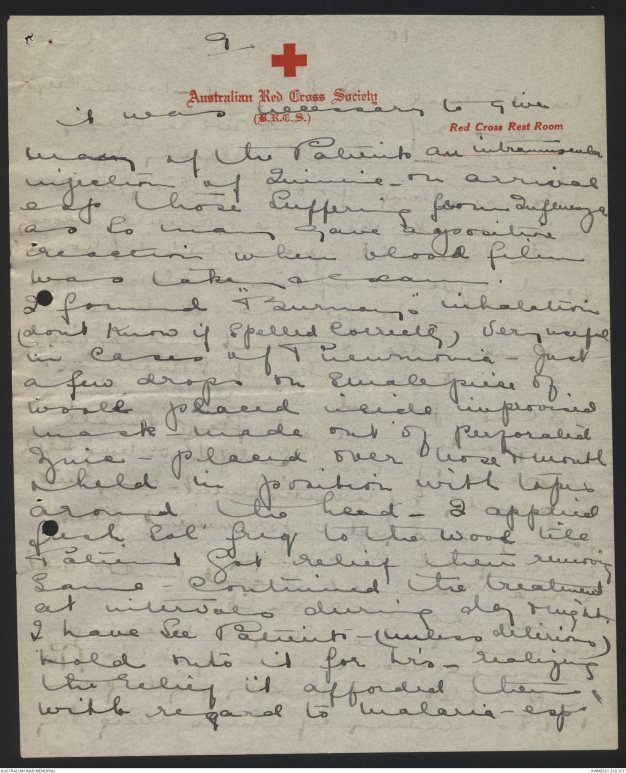 9
Australian Red Cross Society
(B.R.C.S.)
Red Cross Rest Room
it was necessary to give
many of the Patients an intramuscular
injection of Quinine - on arrival
esp those suffering from Influenza
as so many gave a positive
reaction when blood film
was taken
I found "Burnay's" inhalation
(dont know if spelled correctly) very useful
in cases of Pneumonia - Just
a few drops on small piece of
wool placed inside improvised
mask - made out of perforated
Zinc - placed over nose & mouth
& held in position with tapes
around the head - I applied
fresh Sol freq to the wool till
Patient got relief then removing
same continued the treatment
at intervals during day & night.
I have see Patients - (unless delirious)
hold onto it for hrs - realizing
the relief it afforded them
with regard to malaria - esp
AUSTRALIAN WAR MEMORIAL